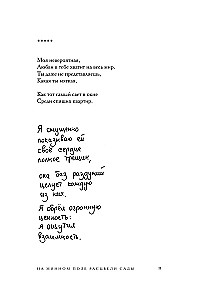 *****
Моя невероятная,
Любви в тебе хватит на весь мир.
Ты даже не представляешь,
Какая ты нужная,

Как тот самый свет в окне
Среди спящих квартир.

Я смущенно
показываю ей
своё сердце
полное трещин,

она без раздумий
целует каждую
из них.

Я обрёл огромную
ценность:
я ощутил
взаимность.

НА МИННОМ ПОЛЕ РАСЦВЕЛИ САДЫ
11